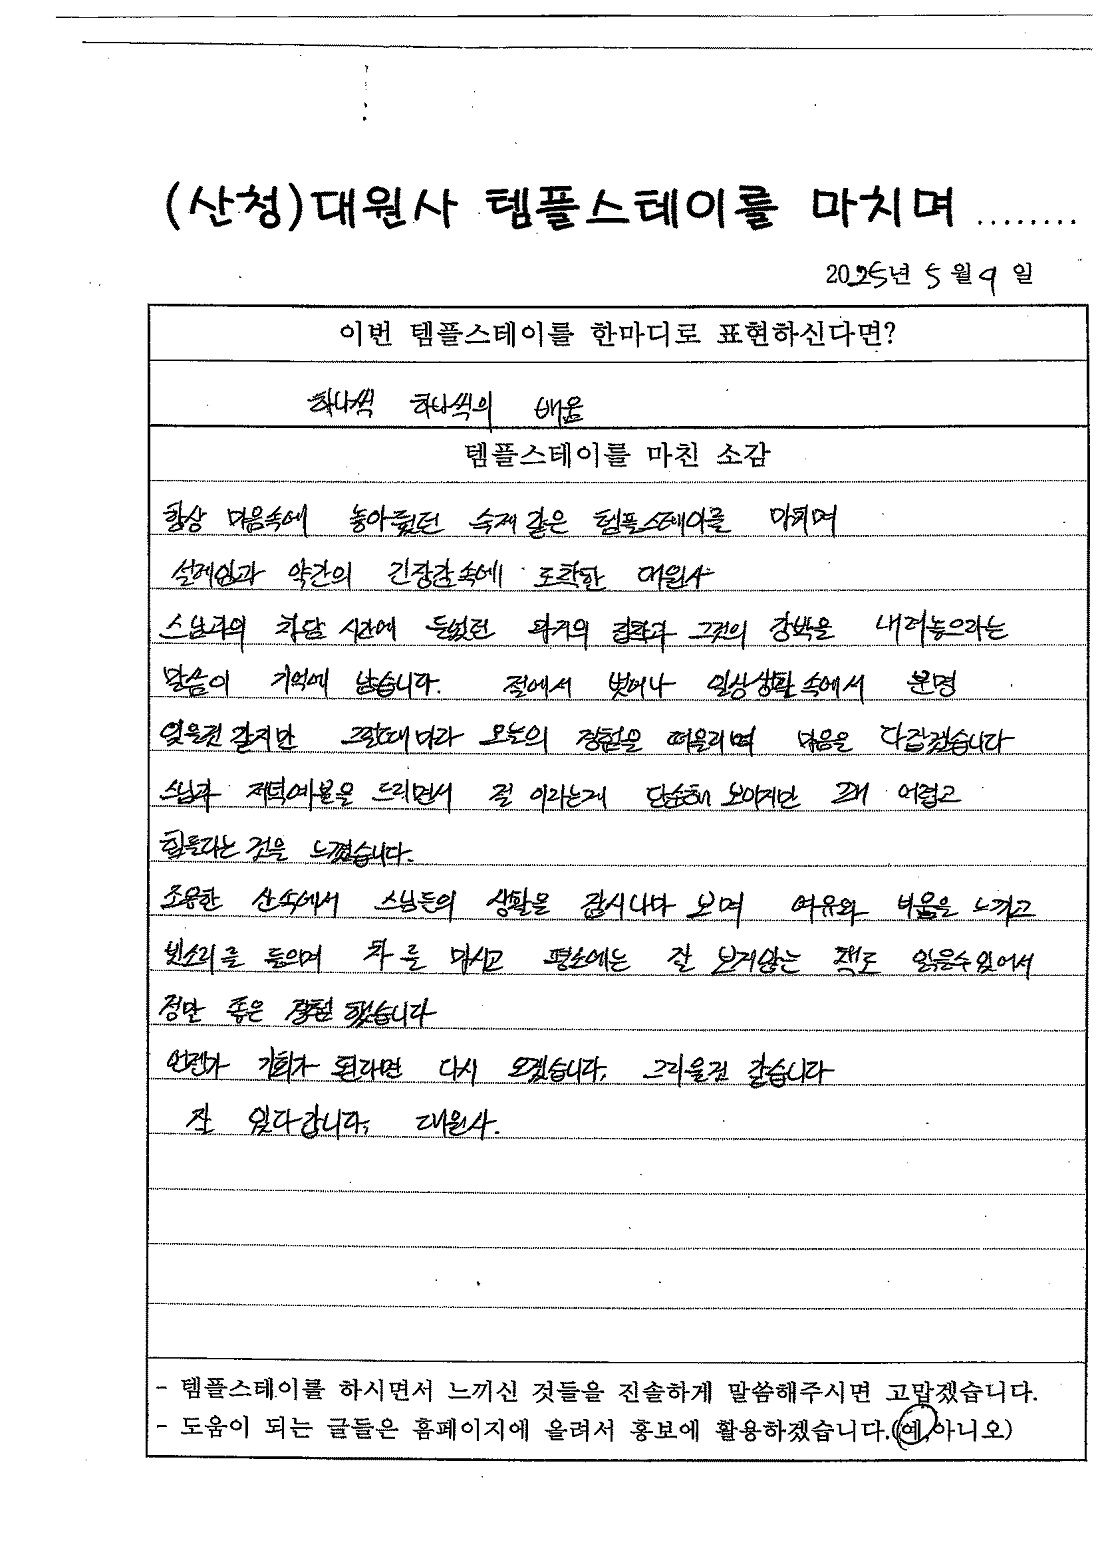 (산청)대원사 템플스테이를 마치며 ........
2025년 5월 9일
이번 템플스테이를 한마디로 표현하신다면?
하나씩 하나씩의 배움
템플스테이를 마친 소감
항상 마음속에 놓아뒀던 숙제같은 템플스테이를 마치며
설레임과 약간의 긴장감속에 도착한 대원사
스님과의 차담 시간에 들었던 과거의 집착과 그것의 강박을 내려놓으라는
말씀이 기억에 남습니다. 절에서 벗어나 일상생활속에서 분명
잊을것 같지만 그럴때마다 오늘의 경험을 떠올리며 마음을 다잡겠습니다
스님과 저녁예불을 드리면서 절 이라는게 단순해 보이지만 꽤 어렵고
힘들다는 것을 느꼈습니다.
조용한 산속에서 스님들의 생활을 잠시나마 보며 여유와 비움을 느끼고
빗소리를 들으며 차를 마시고 평소에는 잘 보지않는 책도 읽을수있어서
정말 좋은 경험 했습니다
언젠가 기회가 된다면 다시 오겠습니다. 그리울것 같습니다
잘 있다갑니다, 대원사.
- 템플스테이를 하시면서 느끼신 것들을 진솔하게 말씀해주시면 고맙겠습니다.
- 도움이 되는 글들은 홈페이지에 올려서 홍보에 활용하겠습니다.(예,아니오)